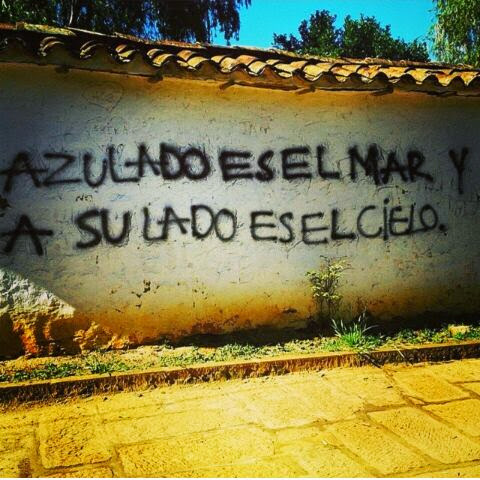 AZULADO ES EL MAR Y
A SU LADO ES EL CIELO.